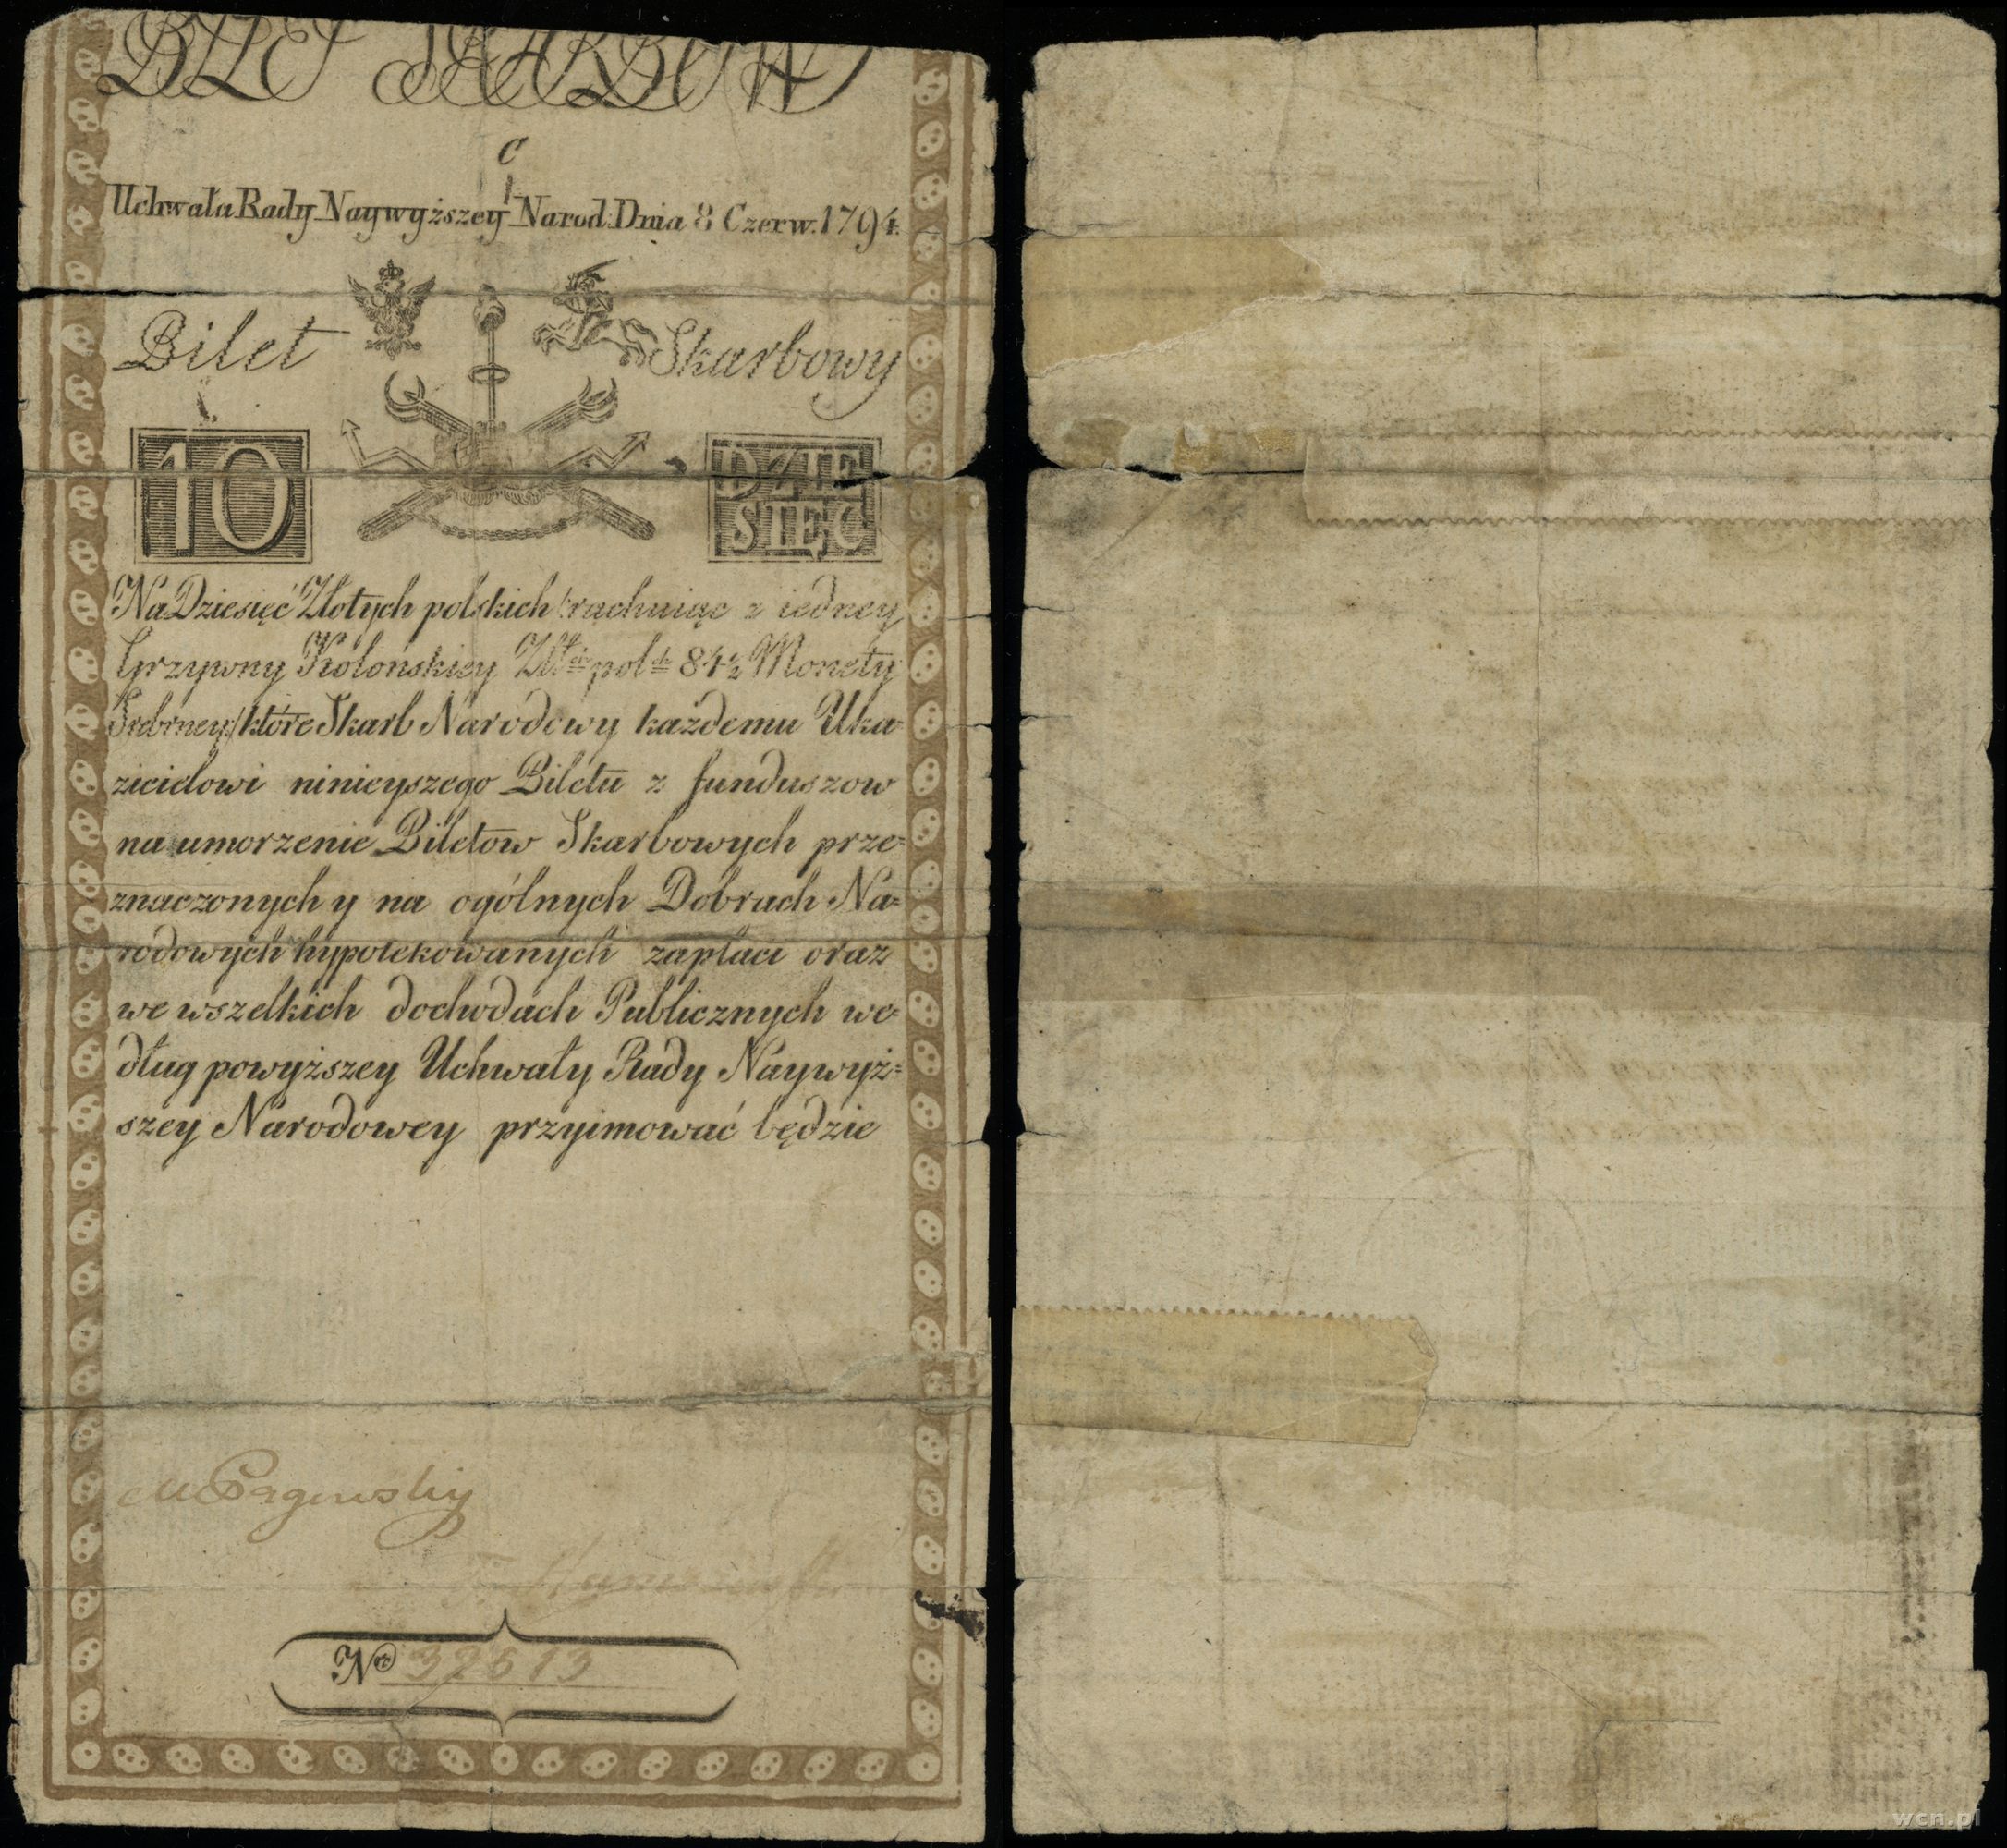 BILET SKARBOW
C
Uchwała Rady Naywyższey Narod: Dnia 8 Czerw. 1794.
Bilet Skarbowy
10
DZIE
SIĘC
Na Dziesięć Złotych polskich /:rachuiąc z iedney
Grzywny Kolońskiey Złł:ch pol:ch 84½ Monety
Srebrney/ które Skarb Narodowy każdemu Uka-
zicielowi ninieyszego Biletu z funduszow
na umorzenie Biletow Skarbowych prze=
znaczonych y na ogólnych Dobrach Na=
rodowych hypotekowanych zapłaci oraz
we wszelkich dochodach Publicznych we=
dług powyższey Uchwały Rady Naywyż=
szey Narodowey przyimować będzie
M Pągowskiy
No 32613
wcn.pl